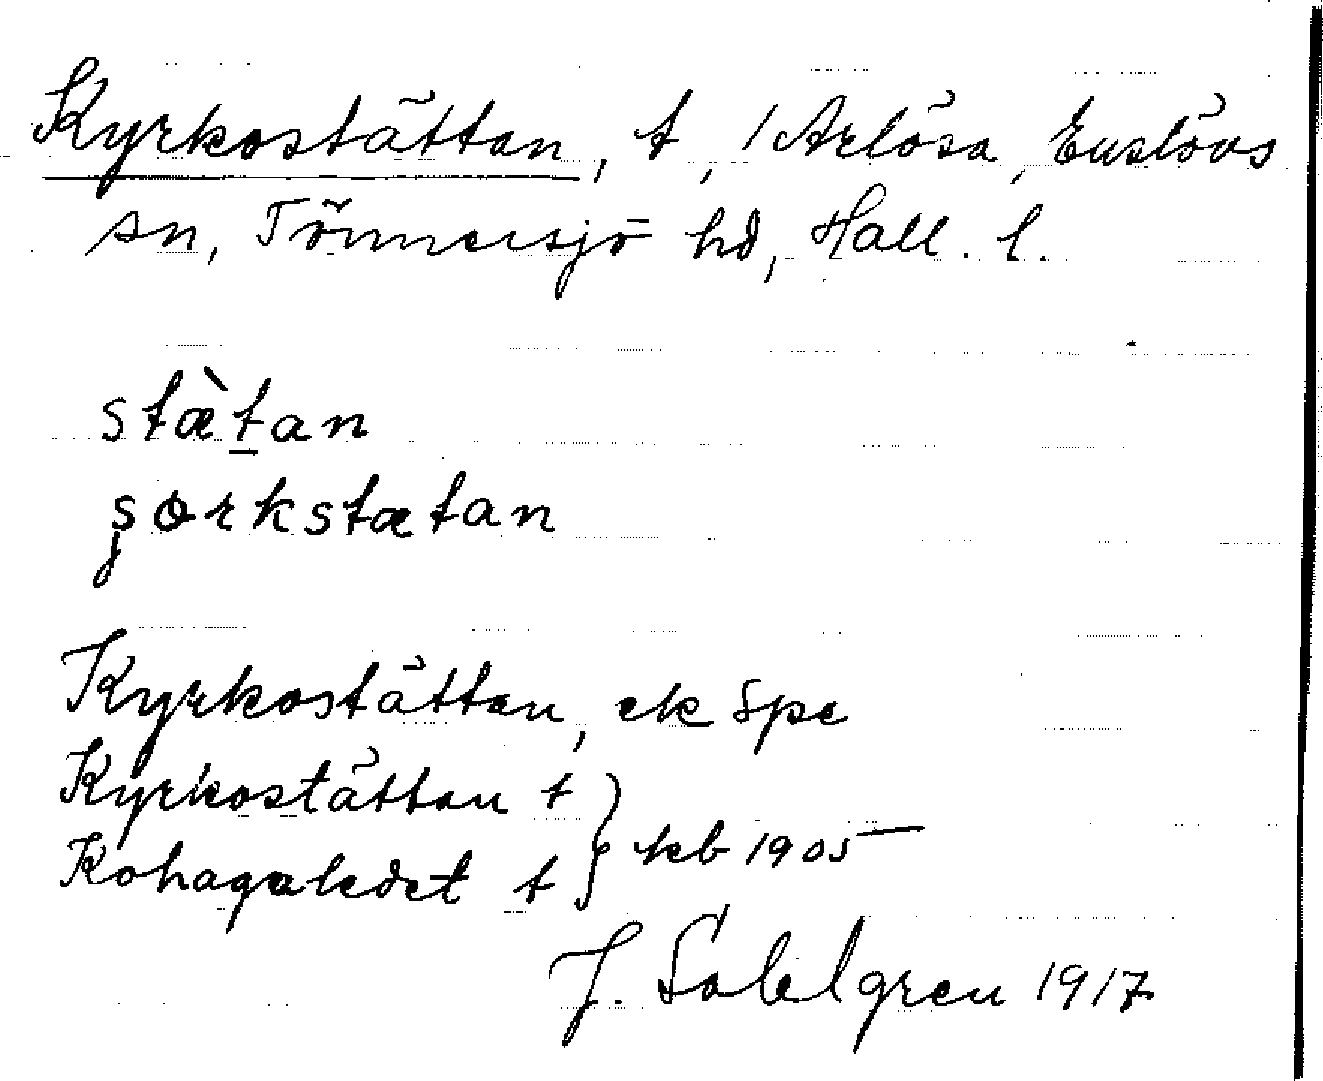 Kyrkostättan, t, / Arlösa, Enslövs
sn, Tönnersjö hd, Hall. l.
stæ̀tan
şorkstætan
Kyrkostättan, ek Spe
Kyrkostättan t
Kohagaledet t } kb 1905
J. Sahlgren 1917